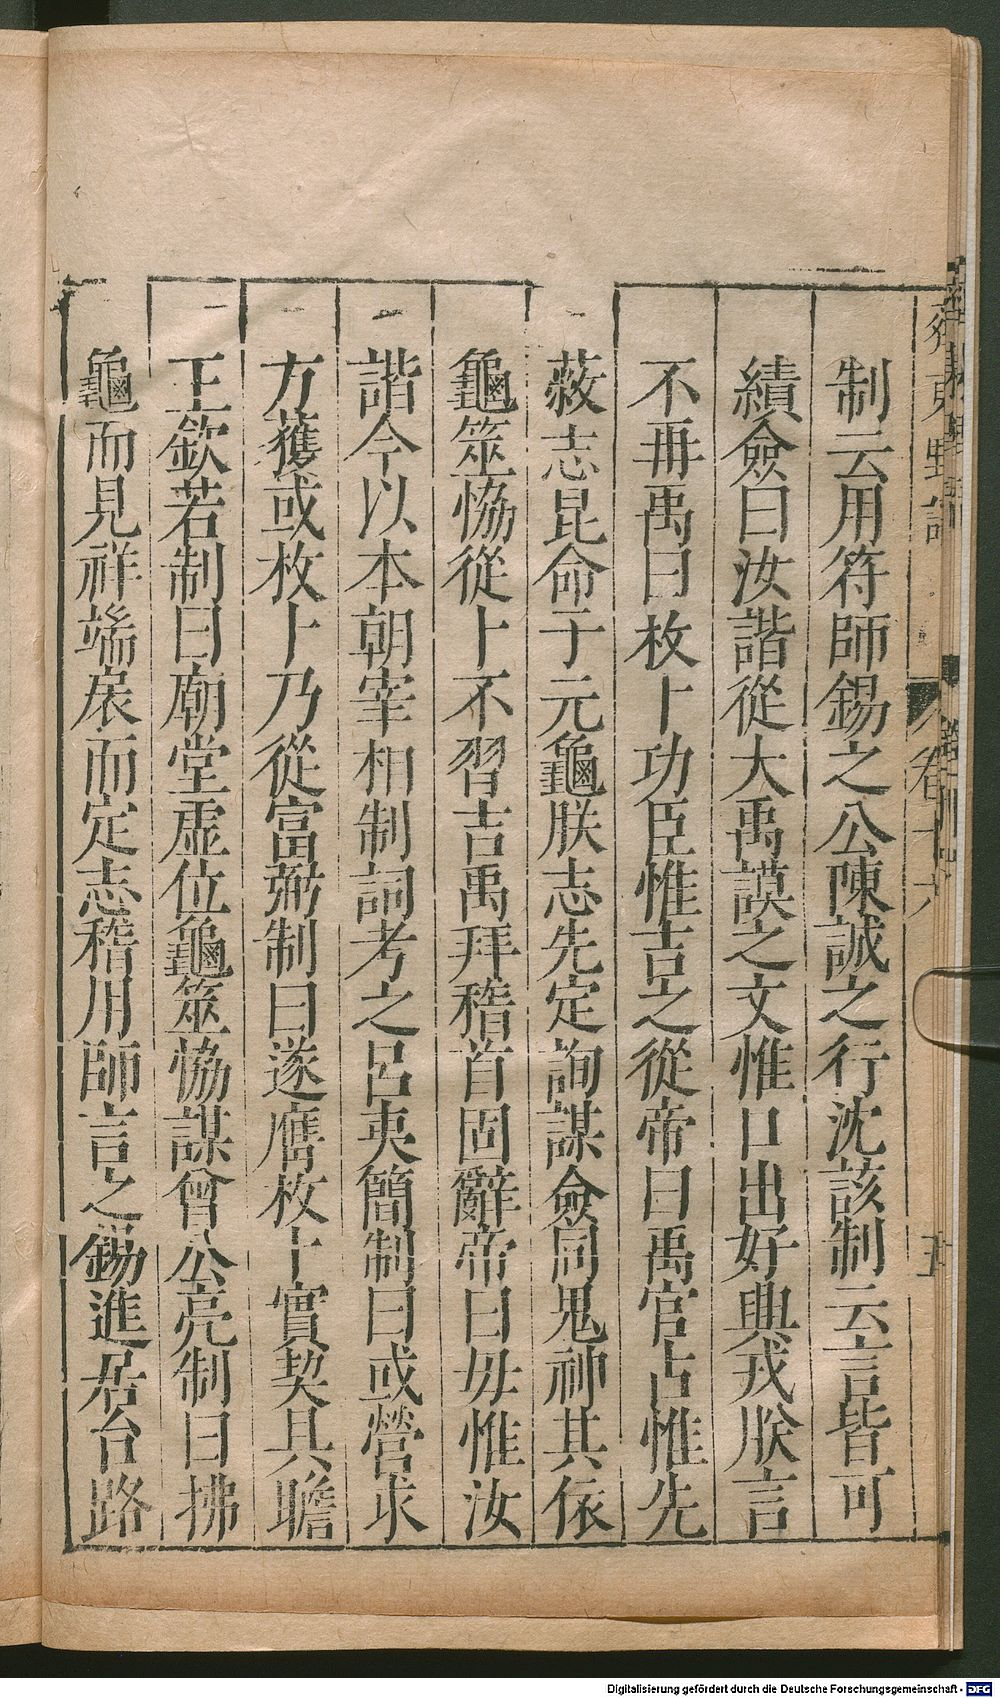 齊東野語 卷十六
制云用符師錫之公陳誠之行沈該制云言皆可
績僉曰汝諧從大禹謨之文惟口出好興戎朕言
不再禹曰枚卜功臣惟吉之從帝曰禹官占惟先
蔽志昆命于元龜朕志先定詢謀僉同鬼神其依
龜筮協從卜不習吉禹拜稽首固辭帝曰毋惟汝
諧今以本朝宰相制詞考之呂夷簡制曰或營求
方獲或枚卜乃從富弼制曰遂膺枚卜實契具瞻
王欽若制曰廟堂虛位龜筮恊謀曾公亮制曰拂
龜而見祥端扆而定志稽用師言之錫進居台路
Digitalisierung gefördert durch die Deutsche Forschungsgemeinschaft - DFG